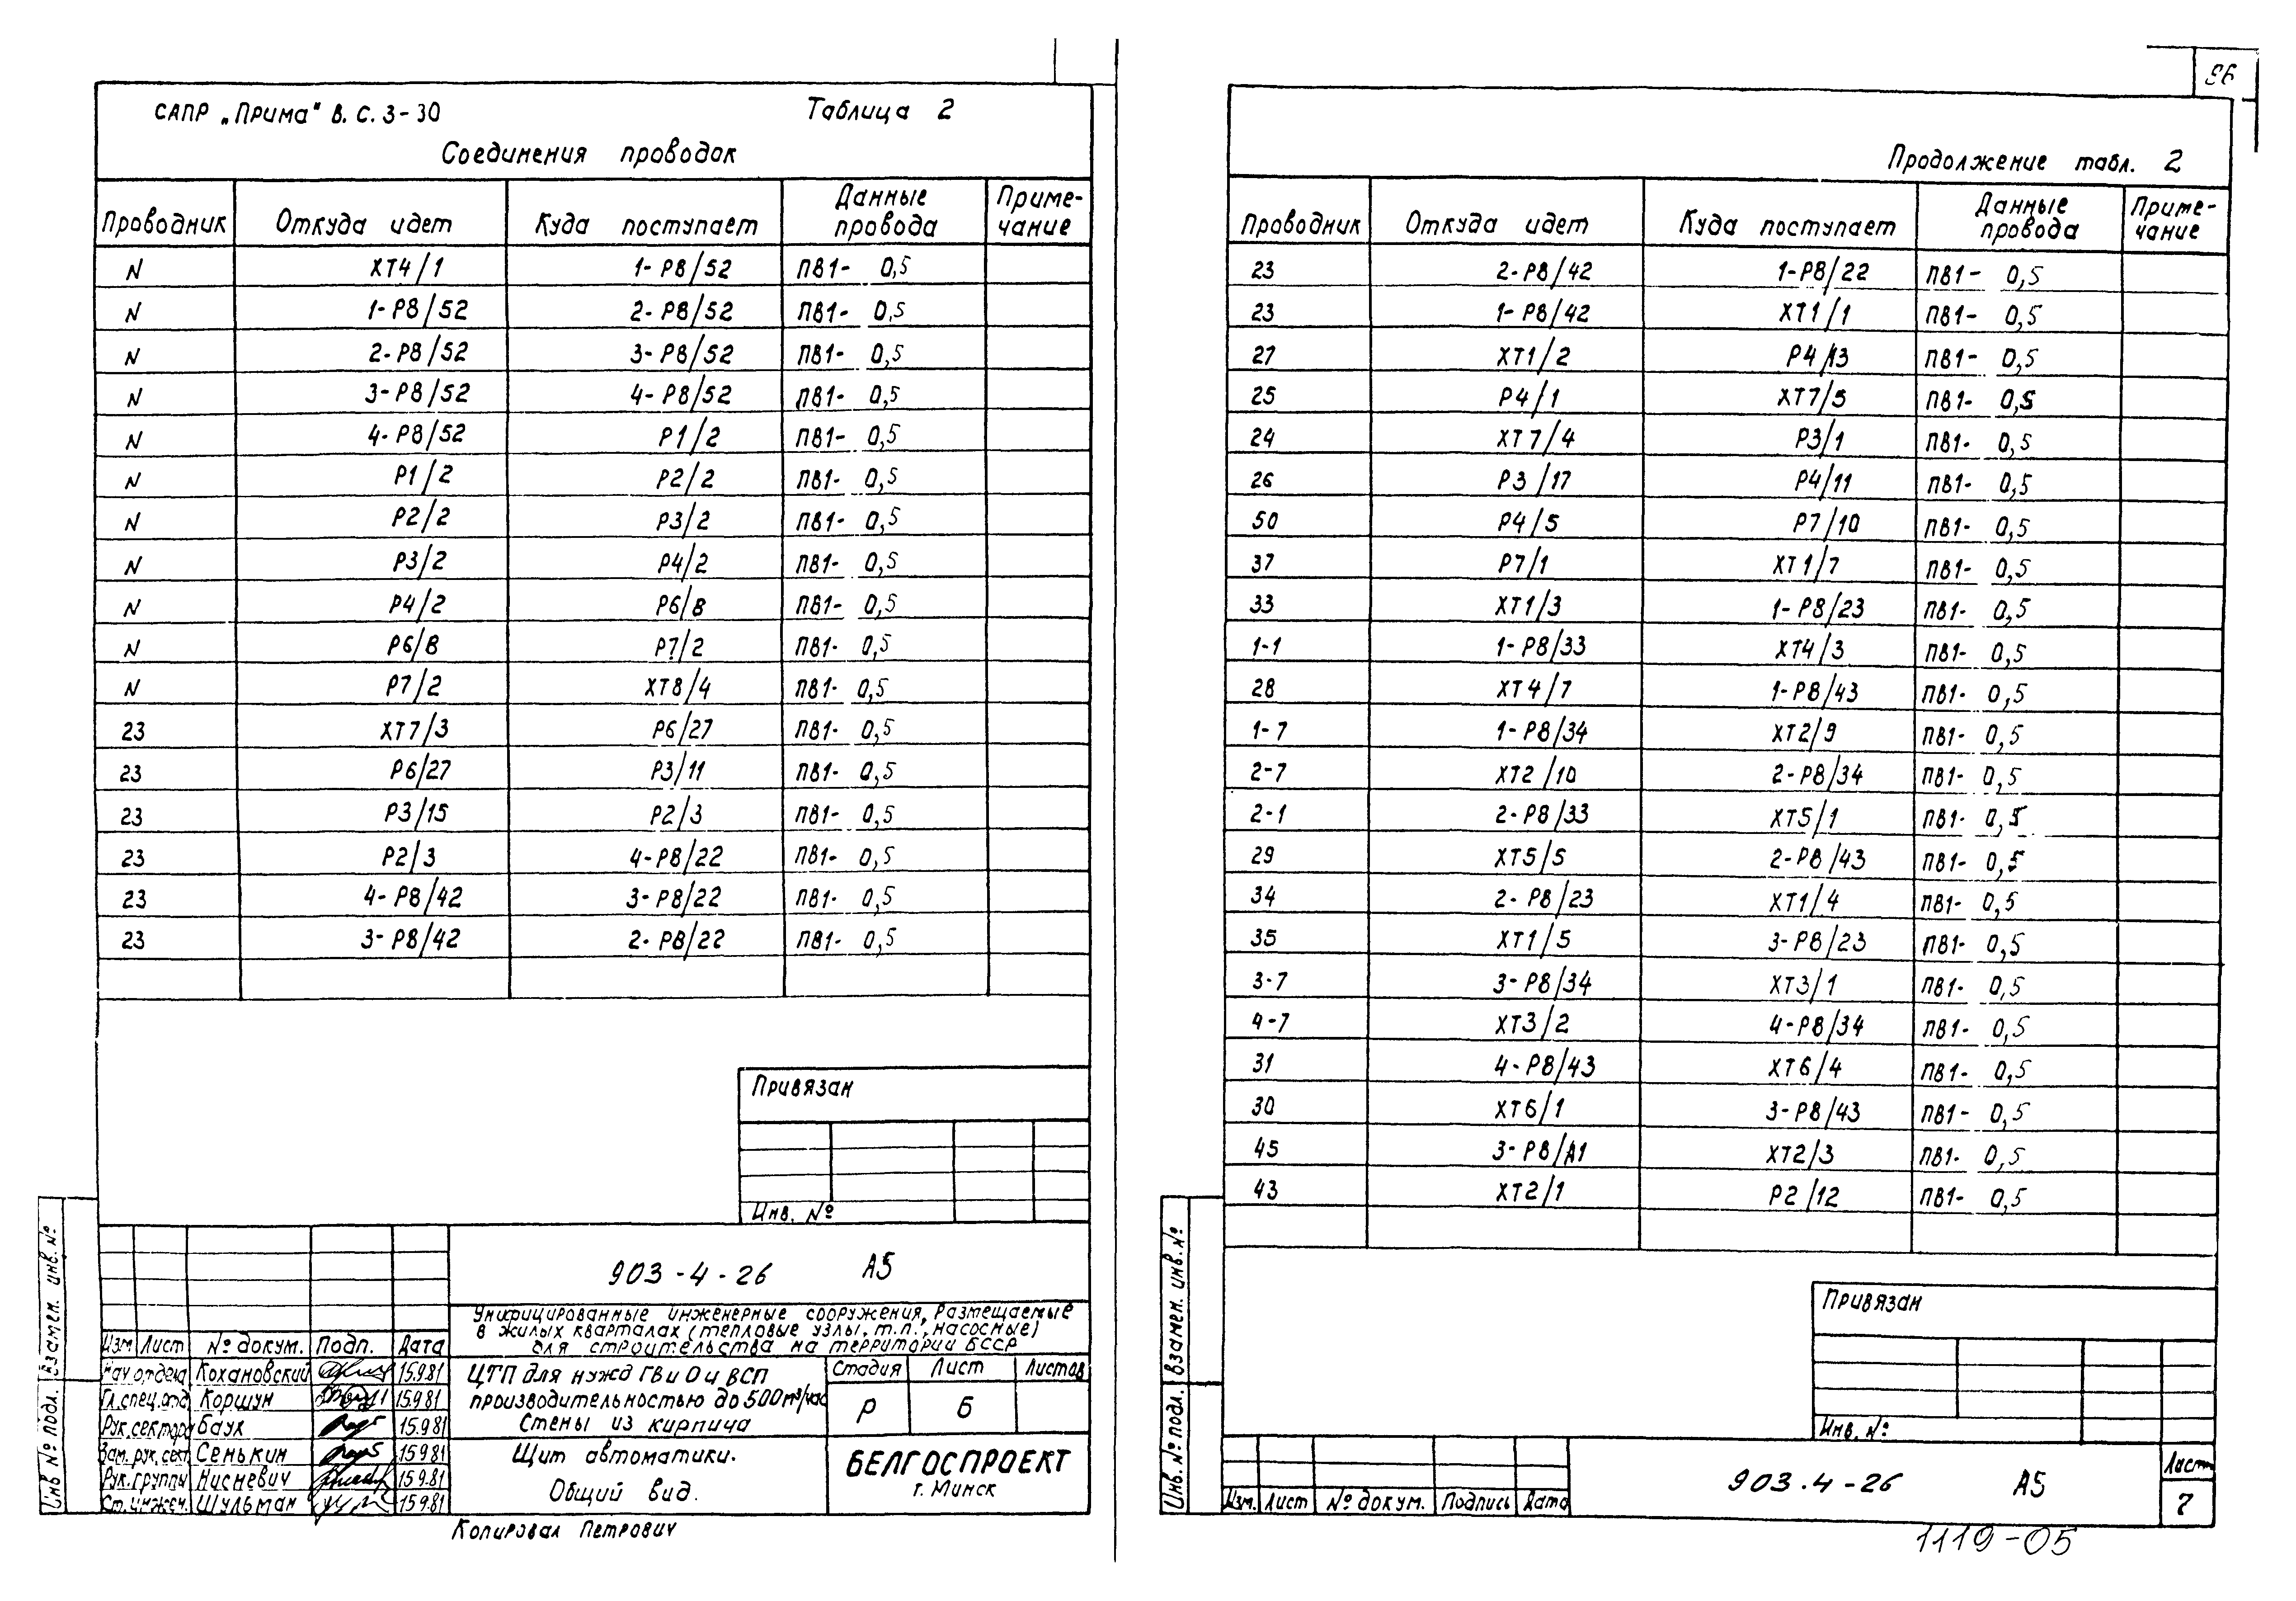 САПР „Прима" В.С.3-30 Таблица 2
Соединения проводок
Проводник Откуда идет Куда поступает Данные провода Приме-чание
N ХТ4/1 1-Р8/52 ПВ1- 0,5
N 1-Р8/52 2-Р8/52 ПВ1- 0,5
N 2-Р8/52 3-Р8/52 ПВ1- 0,5
N 3-Р8/52 4-Р8/52 ПВ1- 0,5
N 4-Р8/52 Р1/2 ПВ1- 0,5
N Р1/2 Р2/2 ПВ1- 0,5
N Р2/2 Р3/2 ПВ1- 0,5
N Р3/2 Р4/2 ПВ1- 0,5
N Р4/2 Р6/8 ПВ1- 0,5
N Р6/8 Р7/2 ПВ1- 0,5
N Р7/2 ХТ8/4 ПВ1- 0,5
23 ХТ7/3 Р6/27 ПВ1- 0,5
23 Р6/27 Р3/11 ПВ1- 0,5
23 Р3/15 Р2/3 ПВ1- 0,5
23 Р2/3 4-Р8/22 ПВ1- 0,5
23 4-Р8/42 3-Р8/22 ПВ1- 0,5
23 3-Р8/42 2-Р8/22 ПВ1- 0,5
Привязан
Инв. №
903-4-26 А5
Унифицированные инженерные сооружения, размещаемые
в жилых кварталах (тепловые узлы, т.п., насосные)
для строительства на территории БССР
Изм Лист № докум. Подп. Дата
Нач отдела Кохановский 15.9.81
Гл.спец.отд Коршун 15.9.81
Рук.сектора Баук 15.9.81
Зам.рук.сект. Сенькин 15.9.81
Рук.группы Нисневич 15.9.81
Ст.инжен. Шульман 15.9.81
ЦТП для нужд ГВ и О и ВСП
производительностью до 500 м³/час
Стены из кирпича
Стадия Лист Листов
Р 6
Щит автоматики.
Общий вид.
БЕЛГОСПРОЕКТ
г. Минск
Копировал Петрович
Инв № подл. Взамен. инв. №
96
Продолжение табл. 2
Проводник Откуда идет Куда поступает Данные провода Приме-чание
23 2-Р8/42 1-Р8/22 ПВ1- 0,5
23 1-Р8/42 ХТ1/1 ПВ1- 0,5
27 ХТ1/2 Р4/13 ПВ1- 0,5
25 Р4/1 ХТ7/5 ПВ1- 0,5
24 ХТ7/4 Р3/1 ПВ1- 0,5
26 Р3/17 Р4/11 ПВ1- 0,5
50 Р4/5 Р7/10 ПВ1- 0,5
37 Р7/1 ХТ1/7 ПВ1- 0,5
33 ХТ1/3 1-Р8/23 ПВ1- 0,5
1-1 1-Р8/33 ХТ4/3 ПВ1- 0,5
28 ХТ4/7 1-Р8/43 ПВ1- 0,5
1-7 1-Р8/34 ХТ2/9 ПВ1- 0,5
2-7 ХТ2/10 2-Р8/34 ПВ1- 0,5
2-1 2-Р8/33 ХТ5/1 ПВ1- 0,5
29 ХТ5/5 2-Р8/43 ПВ1- 0,5
34 2-Р8/23 ХТ1/4 ПВ1- 0,5
35 ХТ1/5 3-Р8/23 ПВ1- 0,5
3-7 3-Р8/34 ХТ3/1 ПВ1- 0,5
4-7 ХТ3/2 4-Р8/34 ПВ1- 0,5
31 4-Р8/43 ХТ6/4 ПВ1- 0,5
30 ХТ6/1 3-Р8/43 ПВ1- 0,5
45 3-Р8/А1 ХТ2/3 ПВ1- 0,5
43 ХТ2/1 Р2/12 ПВ1- 0,5
Привязан
Инв. №
Изм. Лист № докум. Подпись Дата
903.4-26 А5
Лист
7
1119-05
Инв. № подл. Взамен. инв. №